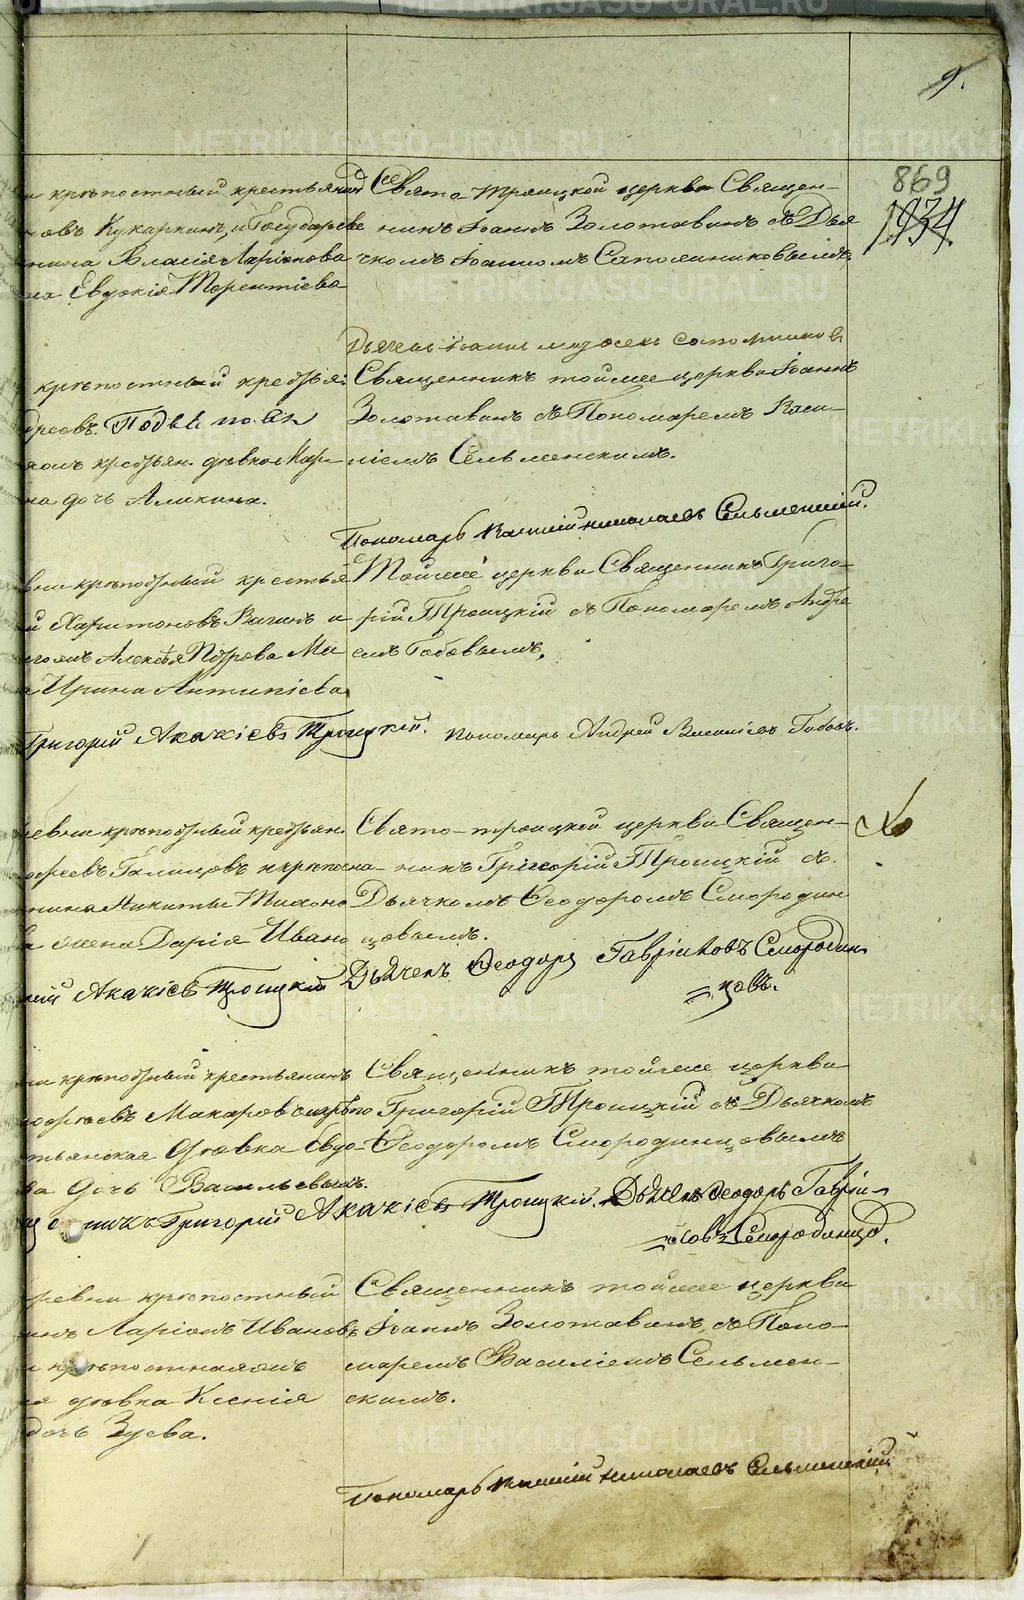 9.
869
1934
крѣпостный крестьянинъ
овъ Кукаркинъ, и Государстве
нина Власія Ларіонова
Евдокія Терентіева
Свято Троицкой церкви Священ-
никъ Іоаннъ Золотавинъ съ Дья
чкомъ Іоанномъ Сапожниковымъ
Дьячекъ Іоаннъ Сапожниковъ
крѣпостный крестья:
дреевъ
крестьян. дѣвкою Мар-
на дочь Аликина.
Священникъ тойже церкви Іоаннъ
Золотавинъ съ Пономаремъ Васи-
ліемъ Сельменскимъ.
Пономарь Василій Николаевъ Сельменскій.
вни крѣпостный крестья
й Харитоновъ Вагинъ и
Алексѣя Петрова Ми
а Ирина Антипіева
Тойже церкви Священникъ Григо-
рій Троицкій съ Пономаремъ Андре
емъ Бабовымъ.
Григорій Акакіевъ Троицкій.
Пономарь Андрей Василіевъ Бабовъ.
ревни крѣпостный крестьян.
офеевъ Галицовъ и крѣпостна
нина Никиты Тихоно
а жена Дарія Ивано
Свято-троицкой церкви Священ-
никъ Григорій Троицкій съ
Дьячкомъ Ѳеодоромъ Смородин
цовымъ.
кій Акакіевъ Троицкій
Дьячекъ Ѳеодоръ Гавріиловъ Смородин
цовъ.
ни крѣпостный крестьянинъ
офѣевъ Макаровъ и крѣпо
тьянская дѣвка Евдо-
ва дочь Васильевыхъ.
Священникъ тойже церкви
Григорій Троицкій съ Дьячкомъ
Ѳеодоромъ Смородинцовымъ
щенникъ Григорій Акакіевъ Троицкій. Дьячекъ Ѳеодоръ Гаврі-
иловъ Смородинцо.
ревни крѣпостный
инъ Ларіонъ Ивановъ
и крѣпостнаяжъ
ая дѣвка Ксенія
дочь Зуева.
Священникъ тойже церкви
Іоаннъ Золотавинъ съ Поно-
маремъ Василіемъ Сельмен-
скимъ.
Пономарь Василій Николаевъ Сельменскій
METRIKI.GASO-URAL.RU